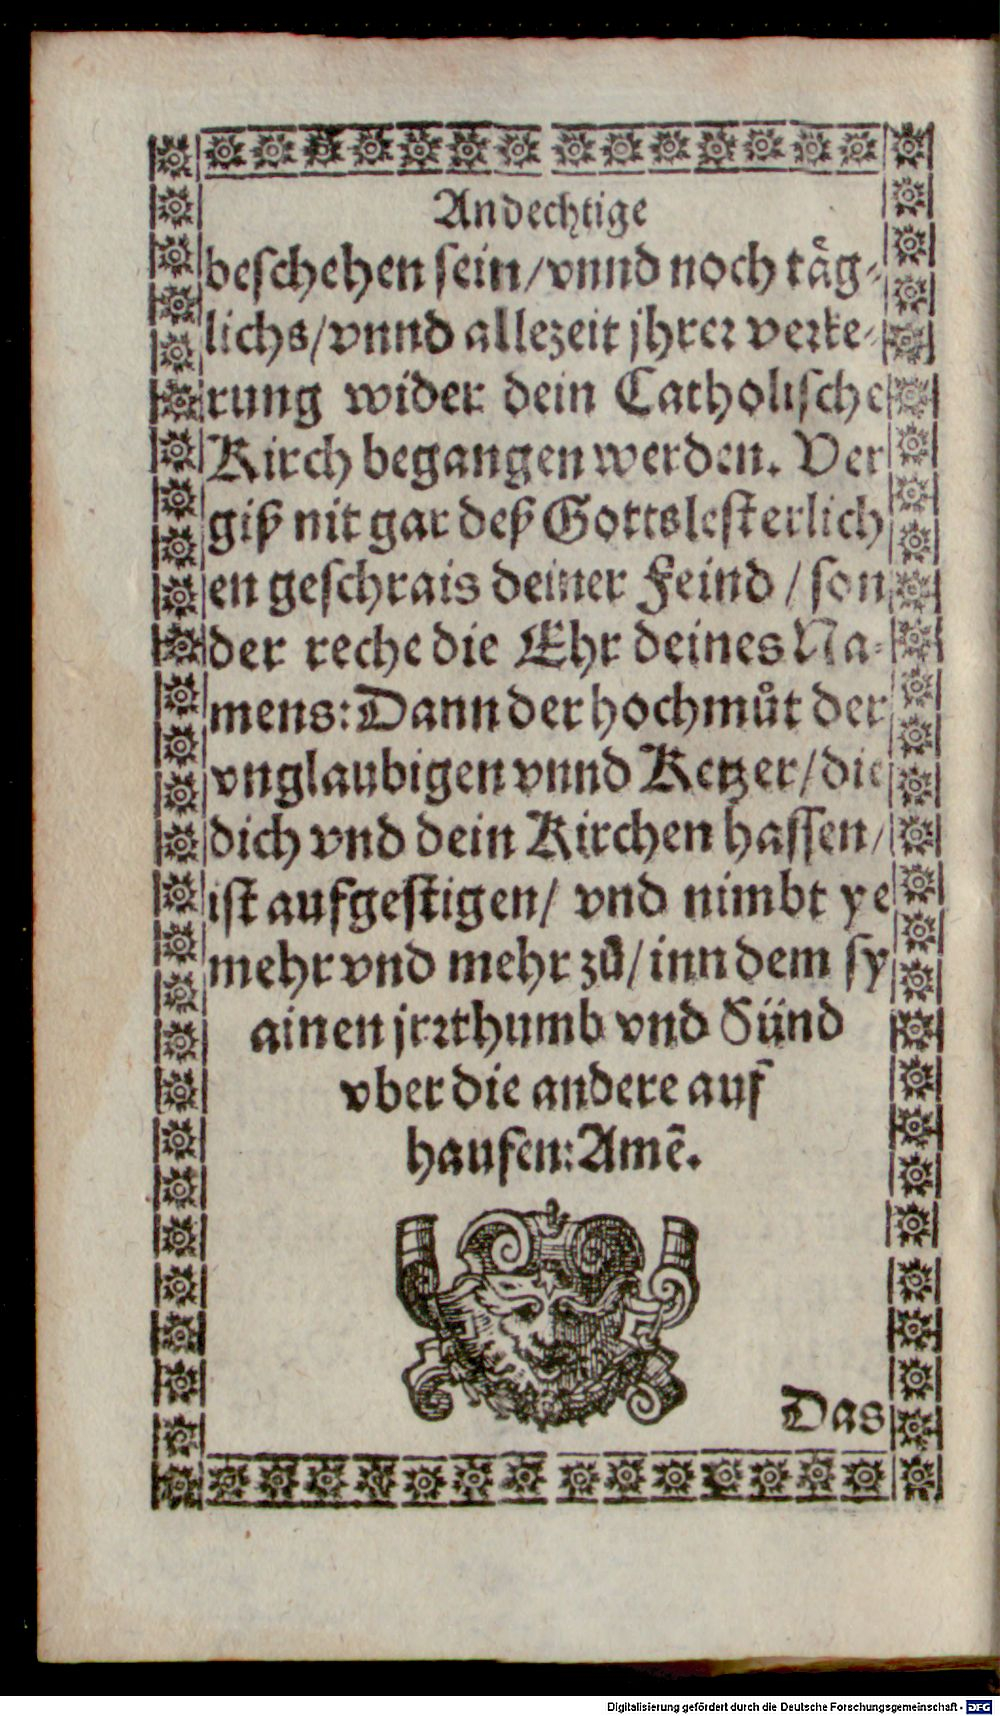 Andechtige
beschehen sein/vnnd noch tåg-
lichs/vnnd allezeit jhrer verke-
rung wider dein Catholische
Kirch begangen werden. Ver
giß nit gar deß Gottslesterlich
en geschrais deiner Feind / son
der reche die Ehr deines Na-
mens: Dann der hochmůt der
vnglaubigen vnnd Ketzer/die
dich vnd dein Kirchen hassen/
ist aufgestigen/ vnd nimbt ye
mehr vnd mehr zů/inn dem sy
ainen jrrthumb vnd Sünd
vber die andere auf
haufen: Amẽ.
Das
Digitalisierung gefördert durch die Deutsche Forschungsgemeinschaft - DFG